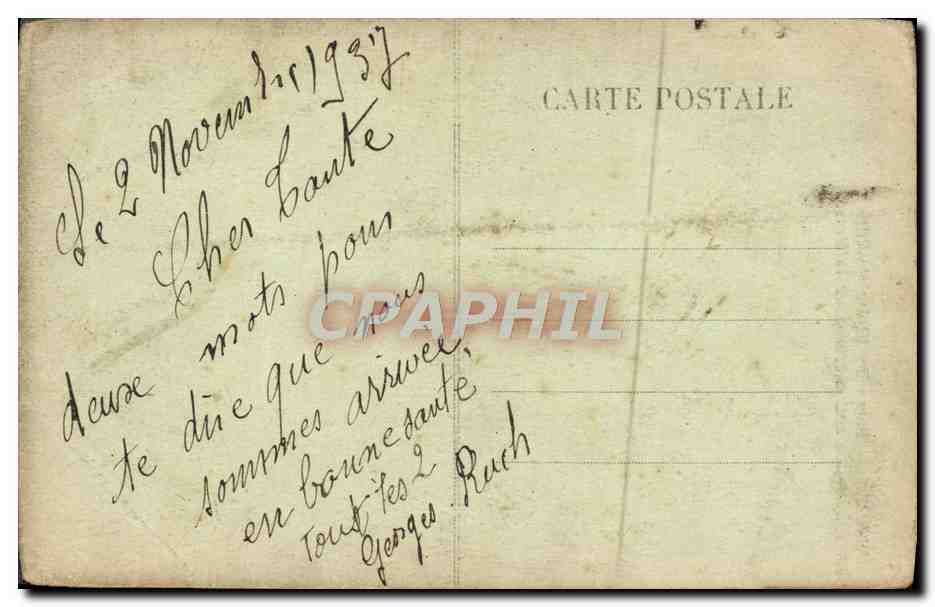 Le 2 Novembre 1937
Cher Tante
deuxe mots pour
te dire que nous
sommes arrivee,
en bonne sante
Tout les 2
Georges Ruch
CARTE POSTALE
CPAPHIL